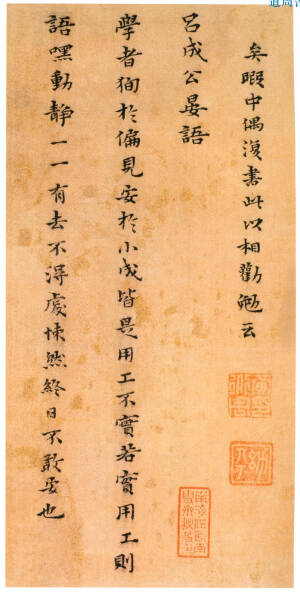 矣暇中偶復書此以相勸勉云
呂成公晏語
學者狥於偏見安於小成皆是用工不實若實用工則
語嘿動靜一一有去不得處悚然終日不敢安也